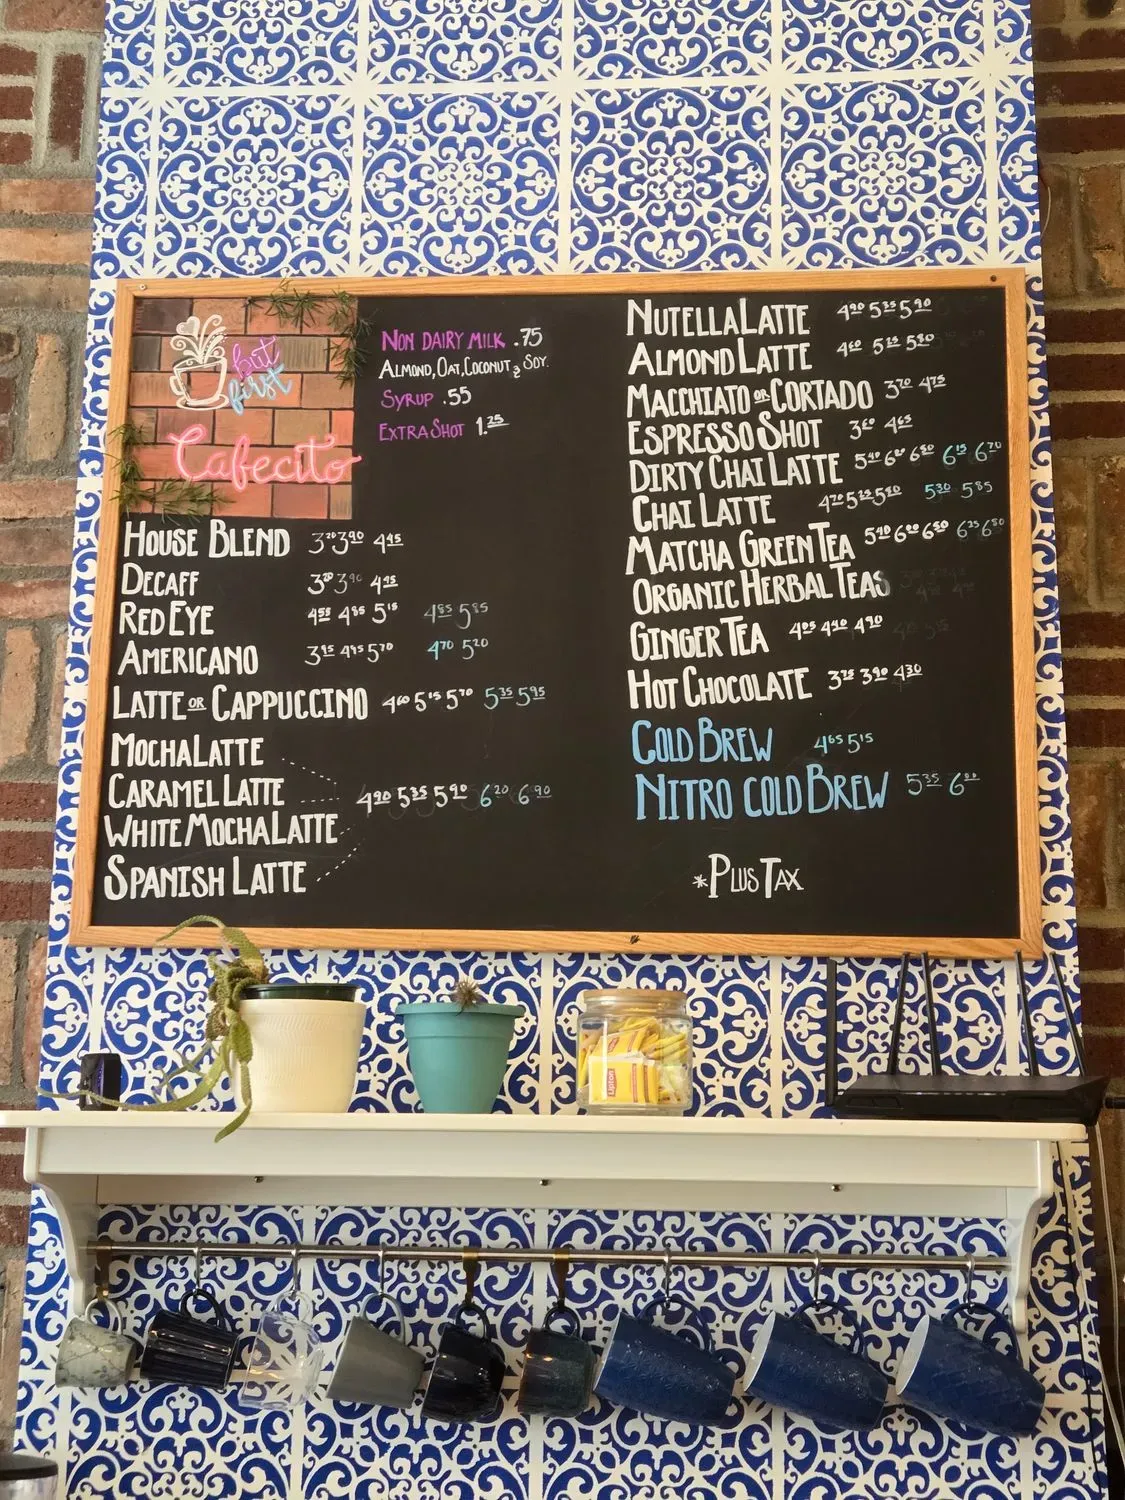 but
first
Cafecito
NON DAIRY MILK .75
ALMOND, OAT, COCONUT & SOY.
SYRUP .55
EXTRA SHOT 1.25
HOUSE BLEND 3.20 3.90 4.45
DECAFF 3.20 3.90 4.45
RED EYE 4.55 4.85 5.15 4.85 5.85
AMERICANO 3.95 4.95 5.70 4.70 5.20
LATTE OR CAPPUCCINO 4.60 5.15 5.70 5.35 5.95
MOCHA LATTE
CARAMEL LATTE 4.90 5.35 5.90 6.20 6.90
WHITE MOCHA LATTE
SPANISH LATTE
NUTELLA LATTE 4.90 5.35 5.90
ALMOND LATTE 4.60 5.15 5.80
MACCHIATO OR CORTADO 3.70 4.75
ESPRESSO SHOT 3.60 4.65
DIRTY CHAI LATTE 5.40 6.00 6.50 6.15 6.70
CHAI LATTE 4.70 5.25 5.80 5.30 5.85
MATCHA GREEN TEA 5.40 6.00 6.50 6.25 6.80
ORGANIC HERBAL TEAS
GINGER TEA 4.05 4.40 4.90
HOT CHOCOLATE 3.75 3.90 4.30
COLD BREW 4.65 5.15
NITRO COLD BREW 5.35 6.00
*PLUS TAX
Lipton